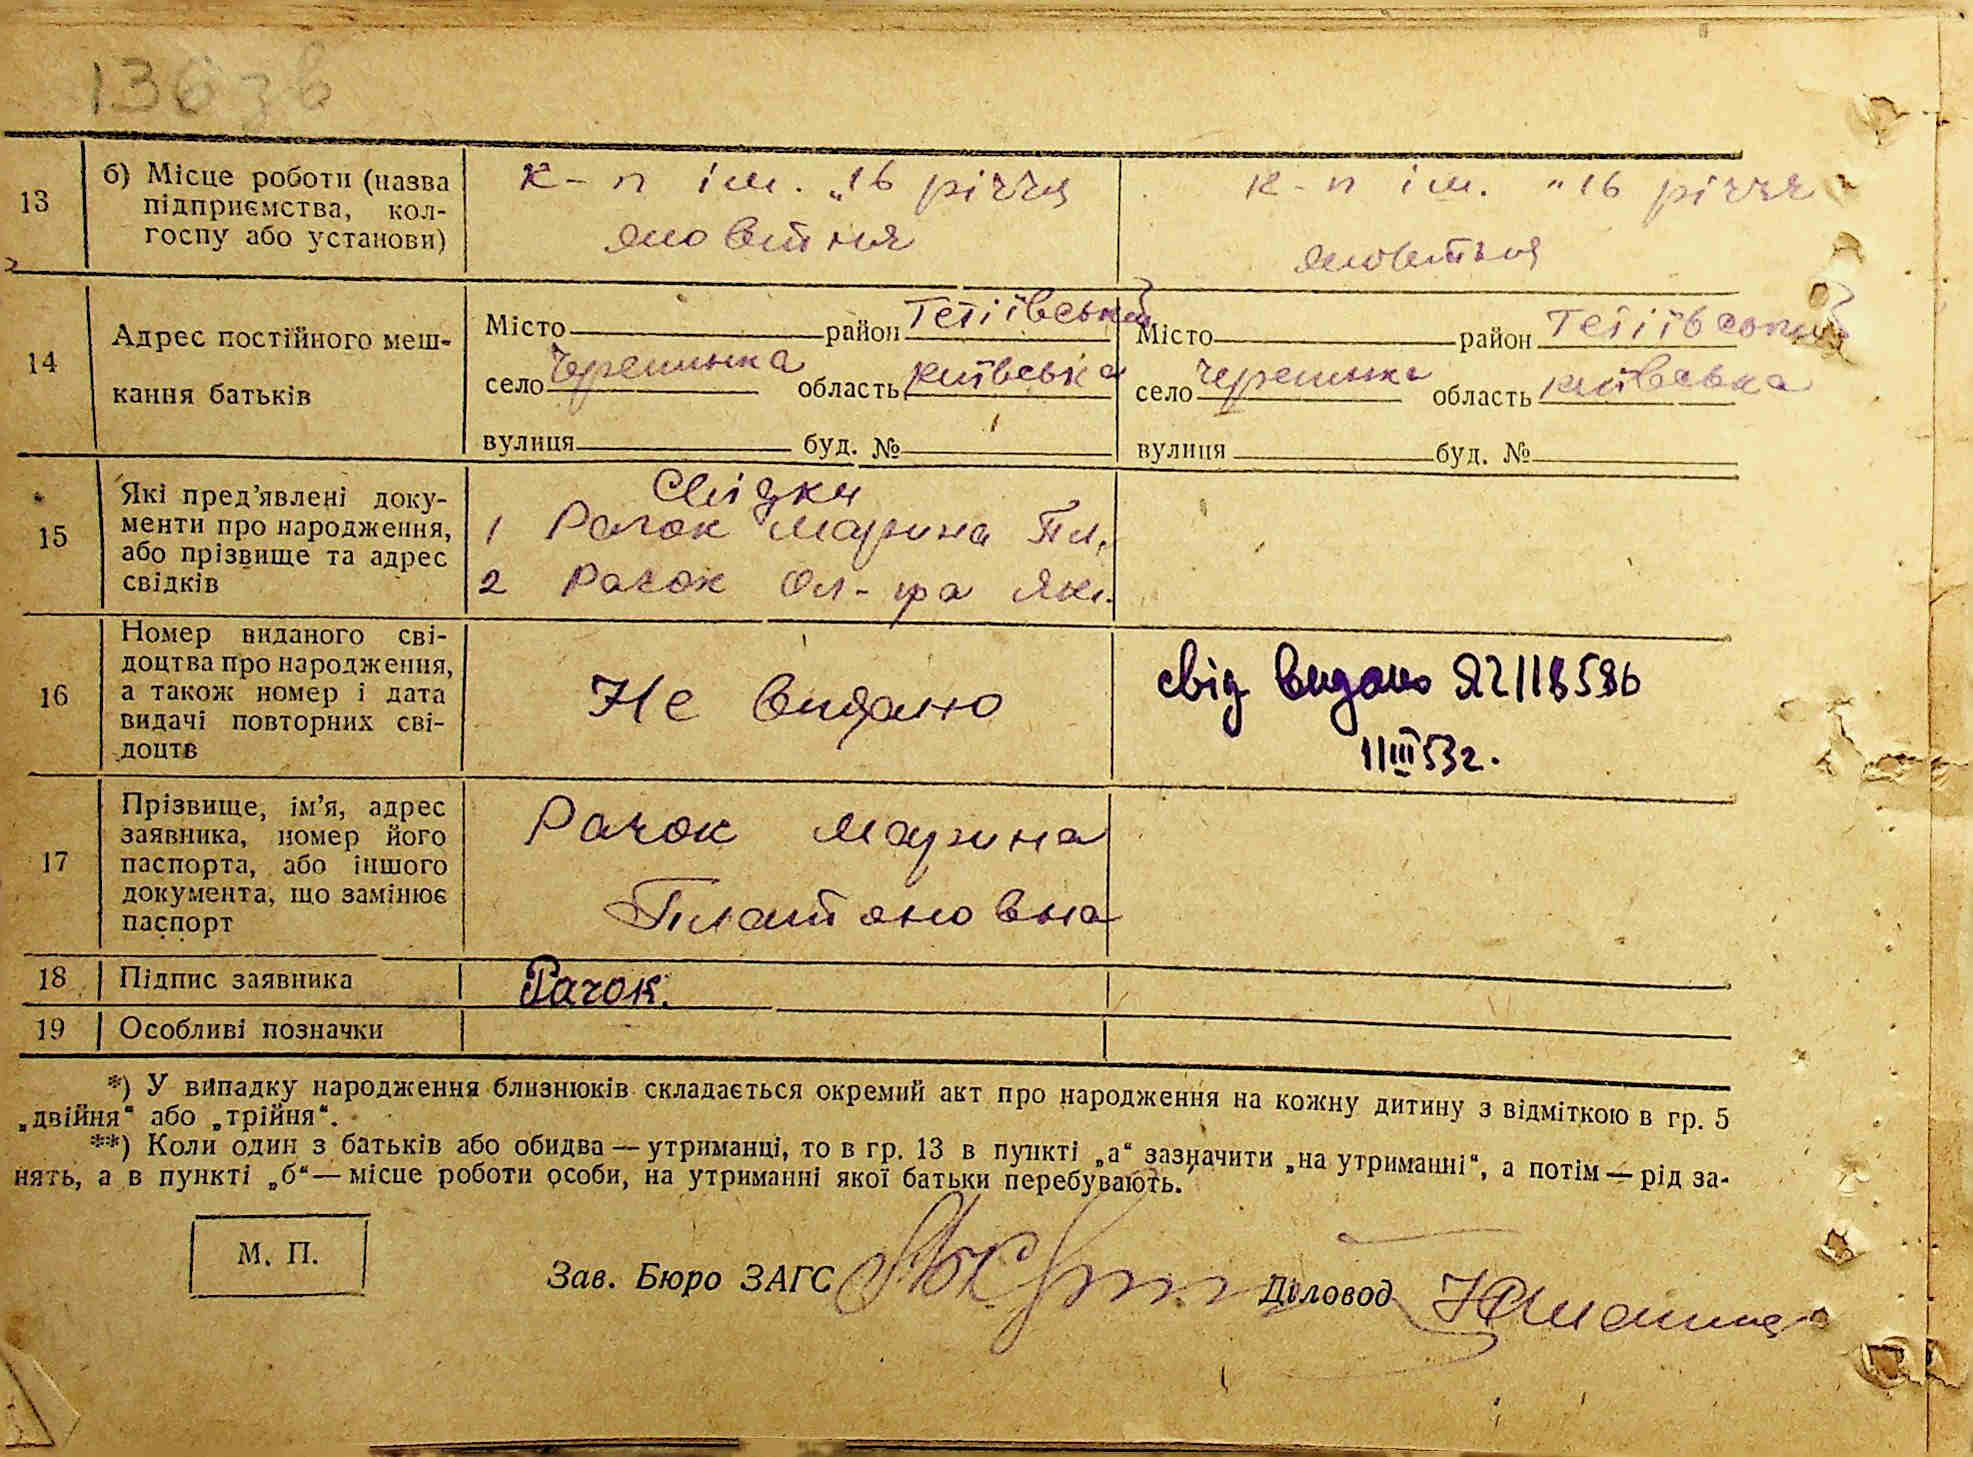 136 зв
13
б) Місце роботи (назва
підприємства, кол-
госпу або установи)
к-п ім. „16 річчя
жовтня
к-п ім. "16 річчя
жовтня
14
Адрес постійного меш-
кання батьків
Місто район Тетіївський
село Черепинка область Київська
вулиця буд. №
Місто район Тетіївський
село Черепинка область Київська
вулиця буд. №
15
Які пред’явлені доку-
менти про народження,
або прізвище та адрес
свідків
Свідки
1 Рачок Марина Пл.
2 Рачок Ол-ра Як.
16
Номер виданого сві-
доцтва про народження,
а також номер і дата
видачі повторних сві-
доцтв
Не видано
свід видано ЯЕ 118586
11 III 53 г.
17
Прізвище, ім’я, адрес
заявника, номер його
паспорта, або іншого
документа, що замінює
паспорт
Рачок Марина
Платоновна
18 Підпис заявника Рачок.
19 Особливі позначки
*) У випадку народження близнюків складається окремий акт про народження на кожну дитину з відміткою в гр. 5
„двійня“ або „трійня“.
**) Коли один з батьків або обидва — утриманці, то в гр. 13 в пункті „а“ зазначити „на утриманні“, а потім — рід за-
нять, а в пункті „б“ — місце роботи особи, на утриманні якої батьки перебувають.
М. П.
Зав. Бюро ЗАГС
Діловод